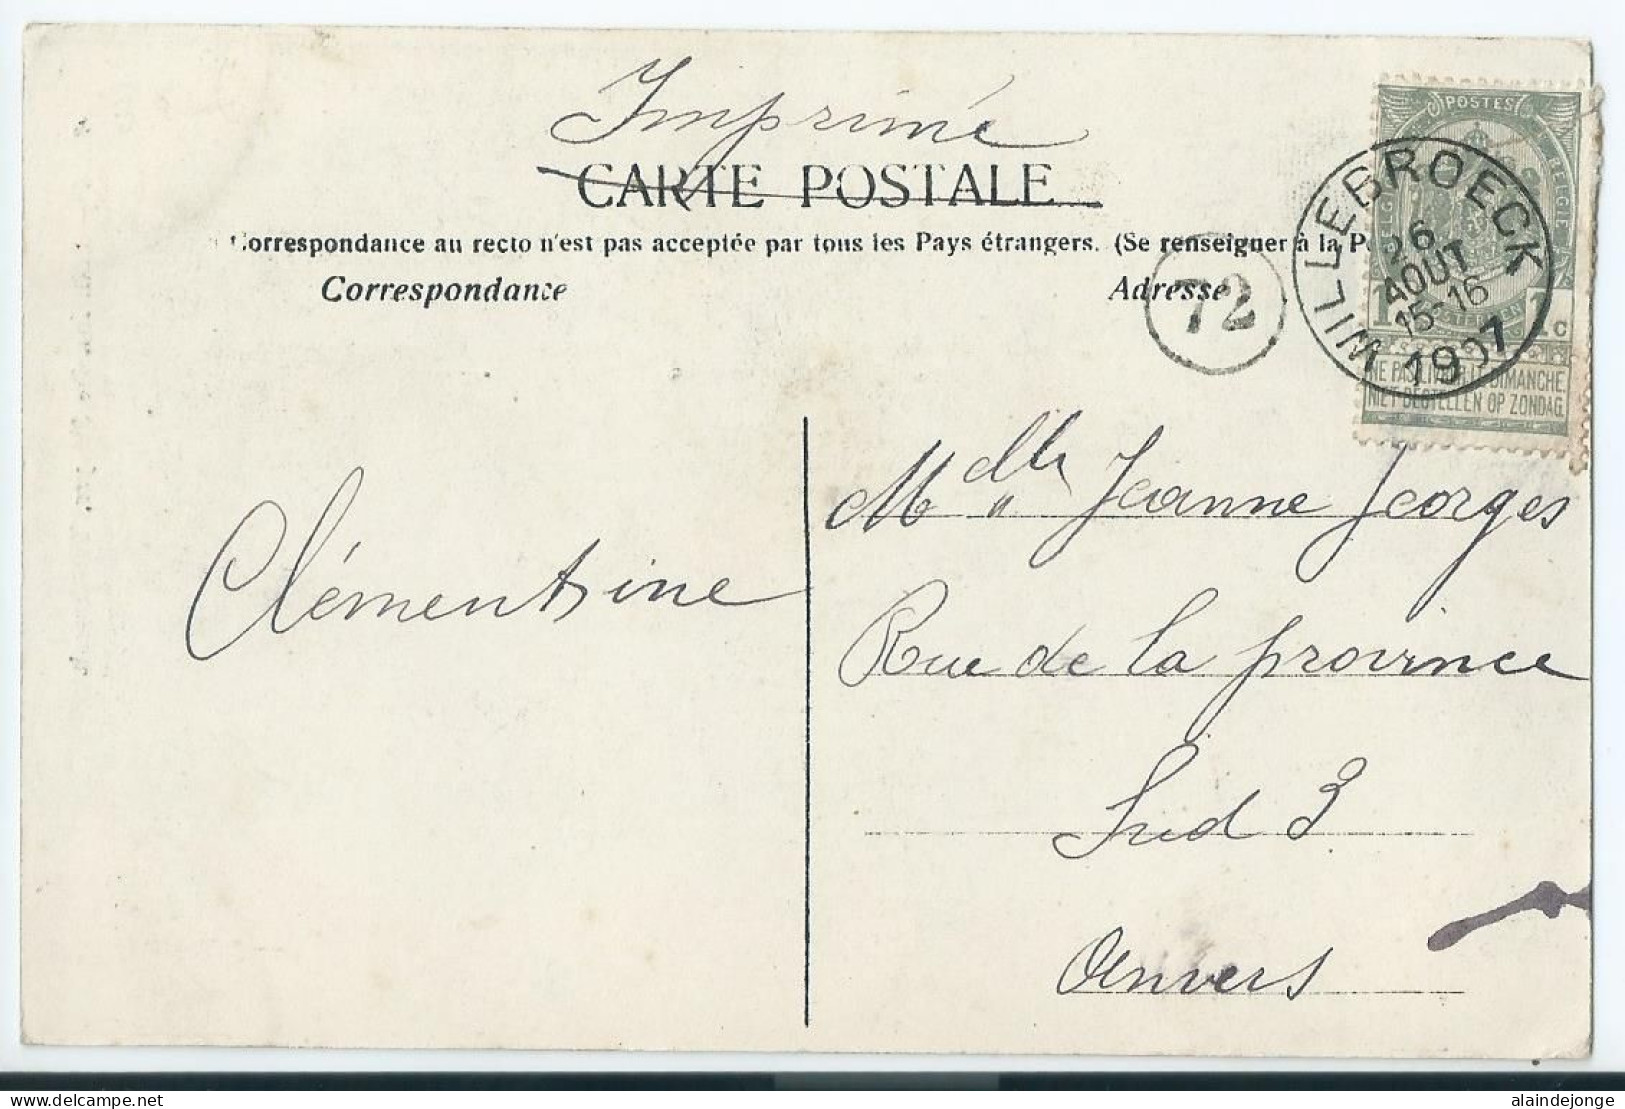 Imprimé
CARTE POSTALE
Correspondance au recto n'est pas acceptée par tous les Pays étrangers. (Se renseigner à la
Correspondance
Adresse
72
POSTES
BELGIE
WILLEBROECK
26
AOUT
15-16
1907
1c
NE PAS LIVRER LE DIMANCHE
NIET BESTELLEN OP ZONDAG
Clémentine
Mdlle Jeanne Georges
Rue de la province
Sud 3
Anvers
delcampe.net
alaindejonge